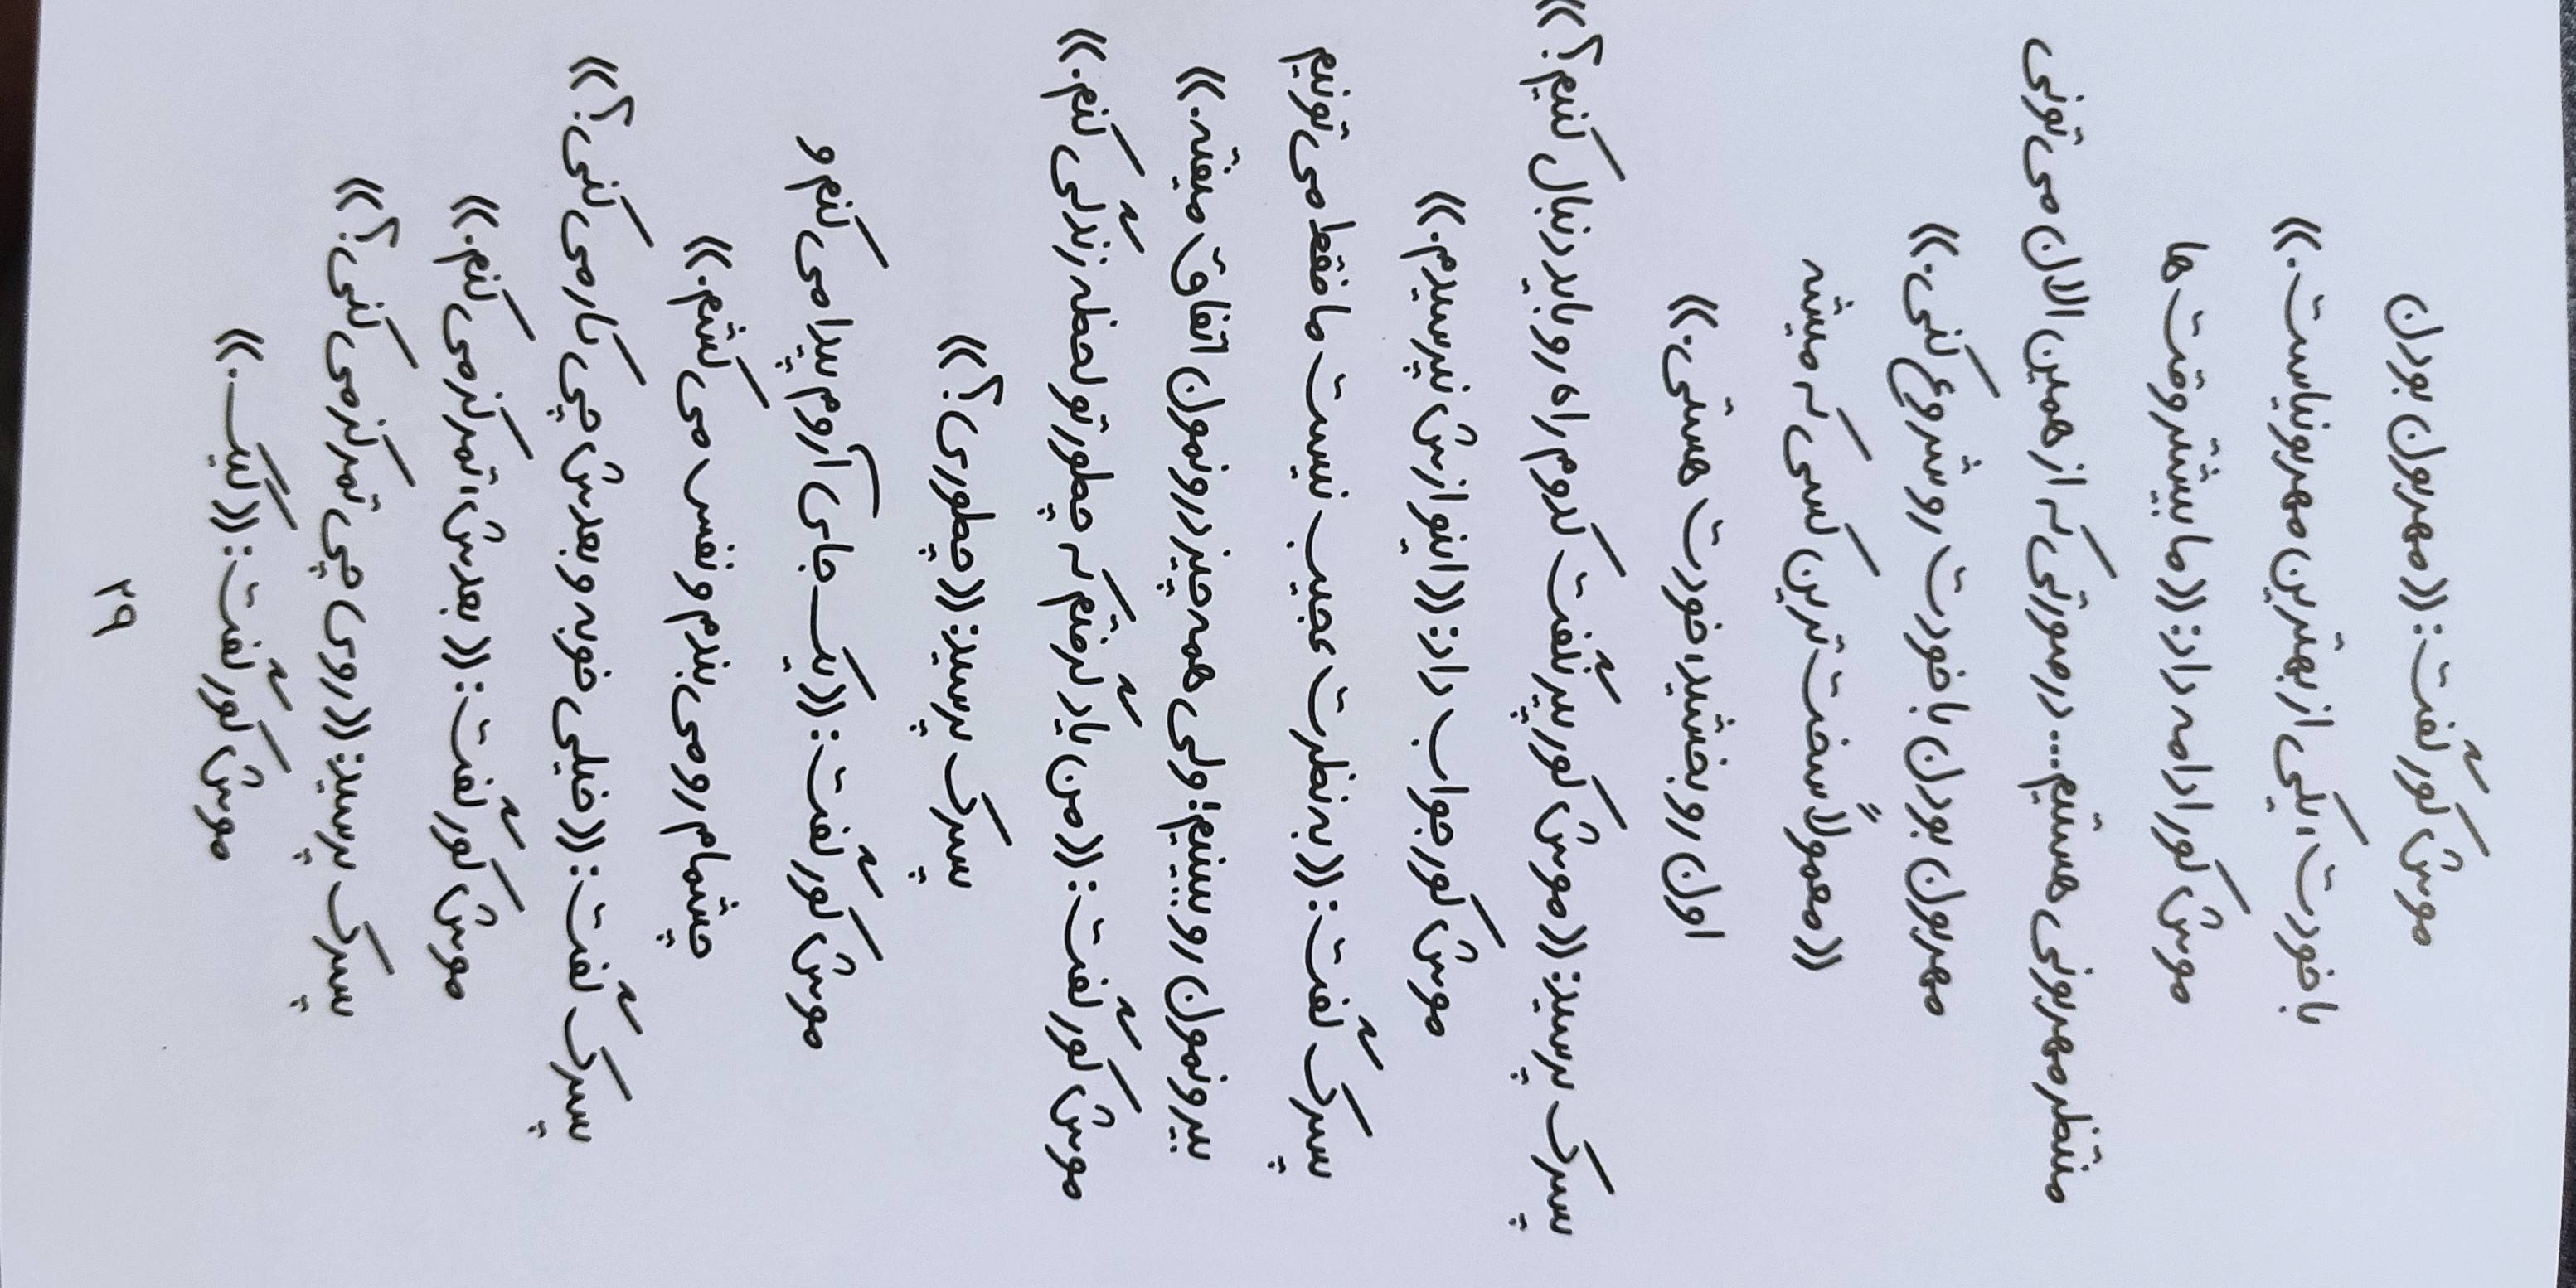 موش کور گفت: ((مهربون بودن
با خودت، یکی از بهترین مهربونیاست.))
موش کور ادامه داد: ((ما بیشتر وقت ها
منتظر مهربونی هستیم... درصورتی که از همین الان می تونی
مهربون بودن با خودت رو شروع کنی.))
((معمولاً سخت ترین کسی که میشه
اون رو بخشید، خودت هستی.))
پسرک پرسید: ((موش کور پیر نگفت کدوم راه رو باید دنبال کنیم؟))
موش کور جواب داد: ((اینو ازش نپرسیدم.))
پسرک گفت: ((به نظرت عجیب نیست ما فقط می تونیم
بیرونمون رو ببینیم؛ ولی همه چیز درونمون اتفاق میفته.))
موش کور گفت: ((من یاد گرفتم که چطور تو لحظه زندگی کنم.))
پسرک پرسید: ((چطوری؟))
موش کور گفت: ((یک جای آروم پیدا می کنم و
چشمام رو می بندم و نفس می کشم.))
پسرک گفت: ((خیلی خوبه و بعدش چی کار می کنی؟))
موش کور گفت: ((بعدش، تمرکز می کنم.))
پسرک پرسید: ((روی چی تمرکز می کنی؟))
موش کور گفت: ((کیک.))
۲۹